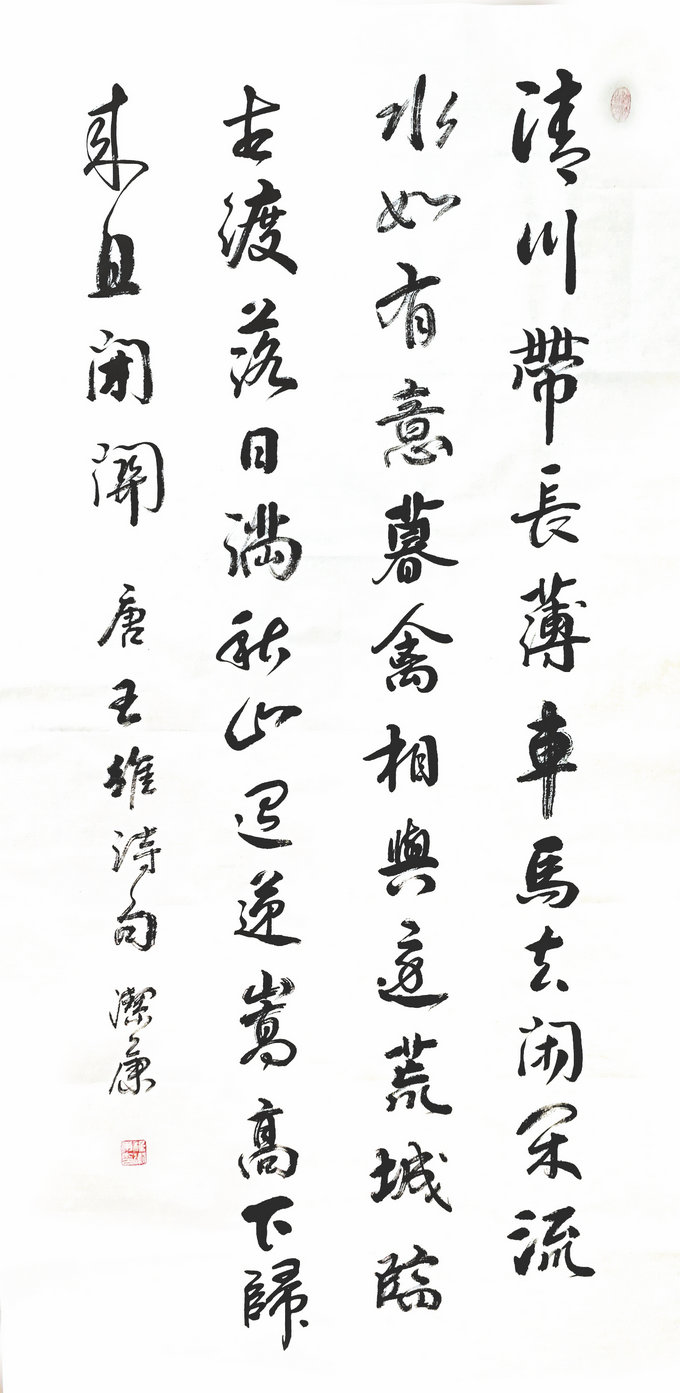 清川帶長薄車馬去閑閑流
水如有意暮禽相與還荒城臨
古渡落日滿秋山迢遞嵩高下歸
來且閉關 唐王維詩句 潔康